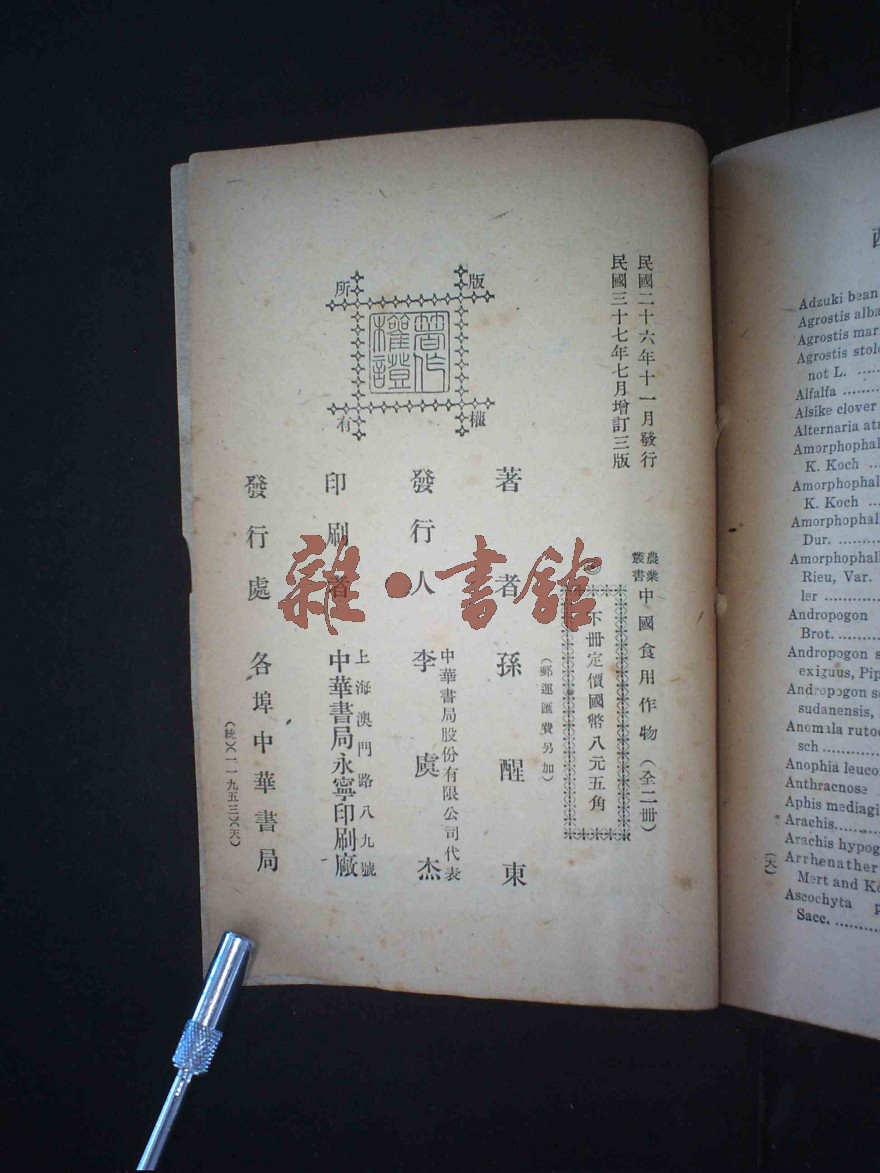 民國二十六年十一月發行
民國三十七年七月增訂三版
農業
叢書
中國食用作物（全二冊）
下冊定價國幣八元五角
（郵運匯費另加）
著者 孫醒東
發行人 中華書局股份有限公司代表
李虞杰
印刷者 上海澳門路八九號
中華書局永寧印刷廠
發行處 各埠中華書局
（統）（一一九五三）（天）
版權所有
著作權證
雜·書館
Adzuki bean
Agrostis alba
Agrostis mar
Agrostis stol
not L. ......
Alfalfa ..........
Alsike clover
Alternaria at
Amorphophal
K. Koch ...
Amorphophal
K. Koch ...
Amorphophal
Dur. ..........
Amorphophall
Rieu, Var.
ler ..........
Andropogon
Brot. ..........
Andropogon s
exiguus, Pip
Andropogon so
sudanensis,
Anomala rutoc
sch ..........
Anophia leuco
Anthracnose
Aphis mediagi
Arachis..........
Arachis hypog
Arrhenather
Mert and Ko
Ascochyta p
Sacc. ..........
（天）